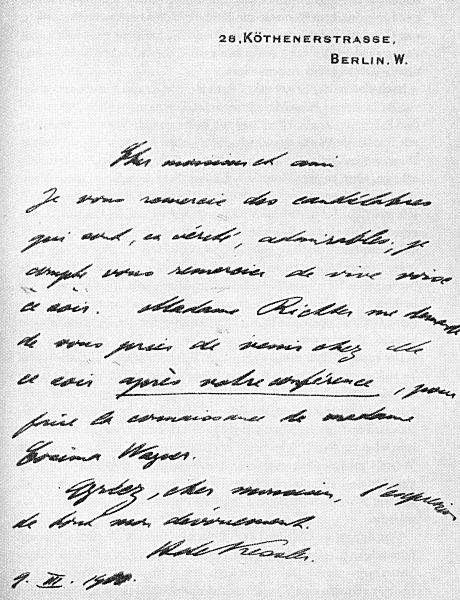 28, KÖTHENERSTRASSE,
BERLIN. W.
Cher monsieur et ami
Je vous remercie des candélabres
qui sont, en vérité, admirables; je
compte vous remercier de vive voix
ce soir. Madame Richter me demande
de vous prier de venir chez elle
ce soir après votre conférence, pour
faire la connaissance de madame
Cosima Wagner.
Agréez, cher monsieur, l'expression
de tout mon dévouement.
Kessler.
9. III.